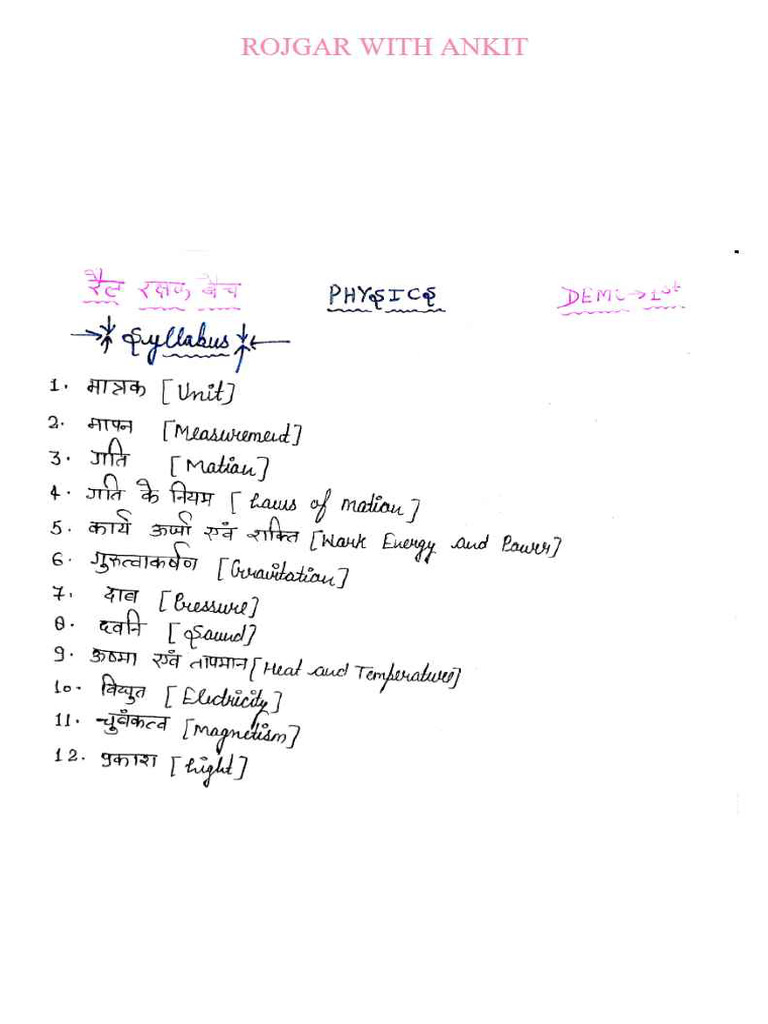 ROJGAR WITH ANKIT
रैट रक्षण बैच PHYSICS DEMO→1st
Syllabus
1. मात्रक [Unit]
2. मापन [Measurement]
3. गति [Motion]
4. गति के नियम [Laws of motion]
5. कार्य ऊर्जा एवं शक्ति [Work Energy and Power]
6. गुरुत्वाकर्षण [Gravitation]
7. दाब [Pressure]
8. ध्वनि [Sound]
9. ऊष्मा एवं तापमान [Heat and Temperature]
10. विद्युत [Electricity]
11. चुंबकत्व [Magnetism]
12. प्रकाश [Light]